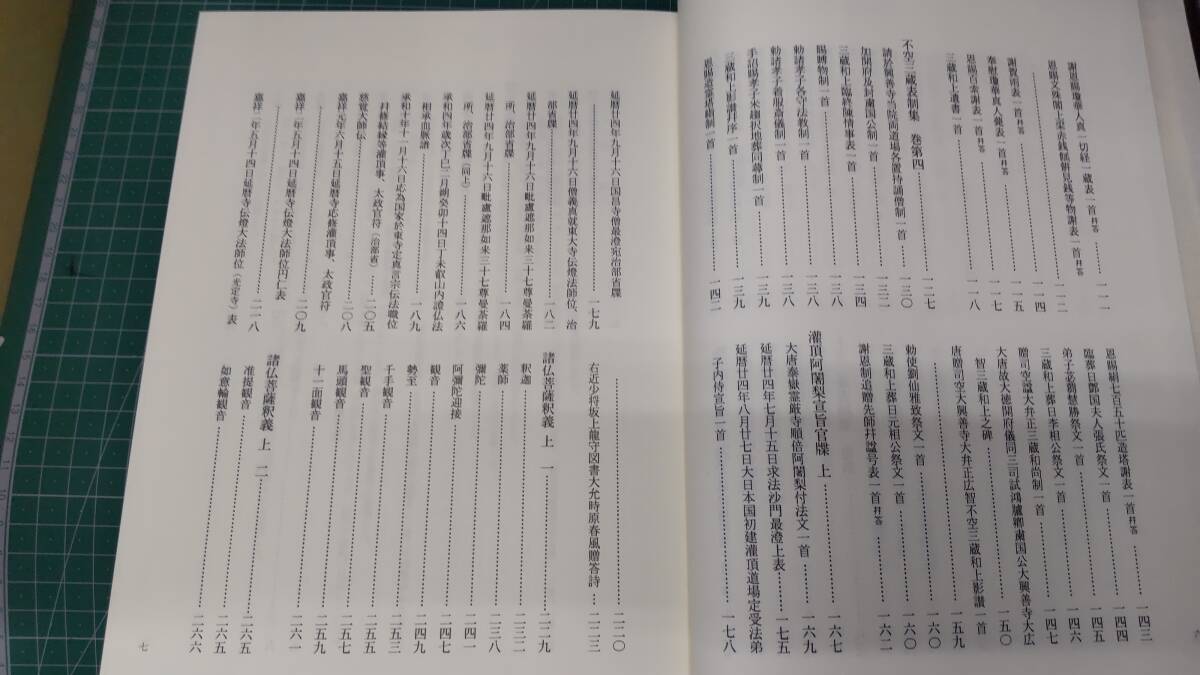 謝恩賜瓊華真人真一切経一蔵表一首 幷答 ……… 一一一
恩賜文殊閣上梁赤銭饆飳見銭等物謝表一首 幷答
……… 一一二
謝賀雨表一首 幷答 ……… 一一四
奉慰瓊華真人薨表一首 幷答 ……… 一一五
恩賜乳牛謝表一首 幷答 ……… 一一七
三蔵和上遺書一首 ……… 一一八
不空三蔵表制集 巻第四 ……… 一二七
請於興善寺当院両道場各置持誦僧制一首 ……… 一三〇
加開府及封粛国公制一首 ……… 一三三
三蔵和上臨終陳情辞表一首 ……… 一三四
賜賻物制一首 ……… 一三八
勅諸孝子各守法教制一首 ……… 一三八
勅諸孝子着服喪儀制一首 ……… 一三八
手詔賜孝子米麺択地葬同幕制一首 ……… 一三九
三蔵和上影讃幷序一首 ……… 一三九
恩賜造霊塔絹制一首 ……… 一四二
恩賜絹七百五十匹造塔謝表一首 幷答 ……… 一四三
臨葬日鄧国夫人張氏祭文一首 ……… 一四四
弟子苾芻慧勝祭文一首 ……… 一四五
三蔵和上葬日李相公祭文一首 ……… 一四六
贈司空諡大弁正三蔵和尚制一首 ……… 一四七
大唐故大徳開府儀同三司試鴻臚卿粛国公大興善寺大広
智三蔵和上之碑 ……… 一五〇
唐贈司空大興善寺大弁正広智不空三蔵和上影讃一首
……… 一五九
勅使劉仙雅致祭文一首 ……… 一六〇
三蔵和上葬日元相公祭文一首 ……… 一六〇
謝恩制追贈先師幷諡号表一首 幷答 ……… 一六二
灌頂阿闍梨宣旨官牒 上 ……… 一六七
大唐泰嶽霊厳寺順倍阿闍梨付法文一首 ……… 一六九
延暦廿四年七月十五日求法沙門最澄上表 ……… 一七五
延暦廿四年八月廿七日大日本国初建灌頂道場定受法弟
子内侍宣旨一首 ……… 一七八
六
延暦廿四年九月十六日国昌寺僧最澄宛治部省牒
……… 一七九
延暦廿四年九月十六日僧義真就東大寺伝燈法師位、治
部省牒 ……… 一八二
延暦廿四年九月十六日毗盧遮那如来三十七尊曼荼羅
所、治部省牒 ……… 一八四
延暦廿四年九月十六日毗盧遮那如来三十七尊曼荼羅
所、治部省牒（同上） ……… 一八六
承和四年歳次丁巳二月朔癸卯十四日丁未叡山内證仏法
相承血脈譜 ……… 一八九
承和十年十一月十六日応為国家於東寺定真言宗伝法職位
幷修結縁等灌頂事、太政官符（治部省） ……… 二〇五
慈覚大師伝 ……… 二〇八
嘉祥元年六月十五日延暦寺応修灌頂事、太政官符
……… 二〇九
嘉祥二年五月十四日延暦寺伝燈大法師位円仁表
嘉祥二年五月十四日延暦寺伝燈大法師位（光定寺）表
……… 二一八
……… 二二〇
右近少将坂上龍守図書大允時原春風贈答詩 ……… 二二三
諸仏菩薩釈義 上 一 ……… 二二九
釈迦 ……… 二三二
薬師 ……… 二三八
彌陀 ……… 二四一
阿彌陀迎接 ……… 二四七
観音 ……… 二四九
勢至 ……… 二四九
千手観音 ……… 二五三
聖観音 ……… 二五五
馬頭観音 ……… 二五七
十一面観音 ……… 二五九
諸仏菩薩釈義 上 二 ……… 二六一
准提観音 ……… 二六五
如意輪観音 ……… 二六六
七